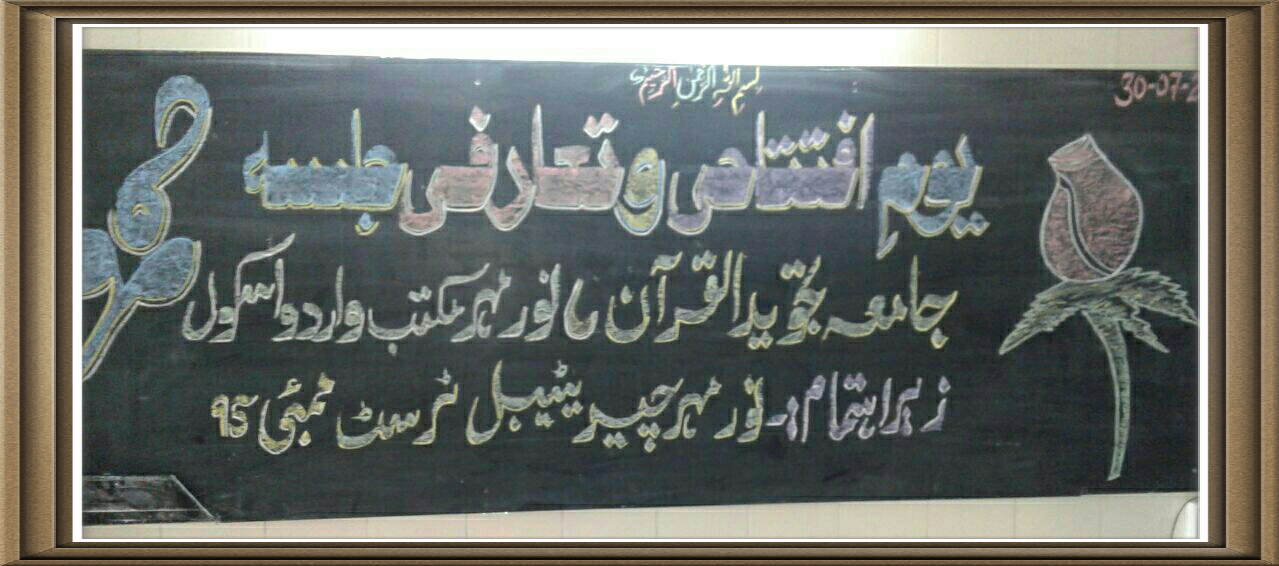 بسم اللہ الرحمن الرحیم
30-07-2
یوم افتتاحی و تعارفی جلسہ
جامعہ تجوید القرآن نور مہر مکتب و اردو اسکول
زیر اہتمام:۔ نور مہر چیریٹیبل ٹرسٹ ممبئی 95